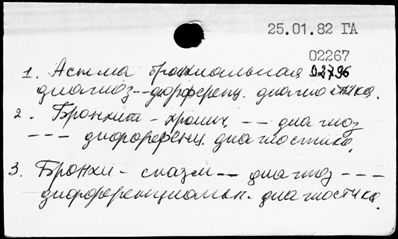 25.01.82 ГА
02267
1. Астма бронхиальная 02796
диагноз -- дифференц. диагностика.
2. Бронхит - хронич -- диагноз
--- дифференц. диагностика.
3. Бронхи - спазм -- диагноз ---
дифференциальн. диагностика.